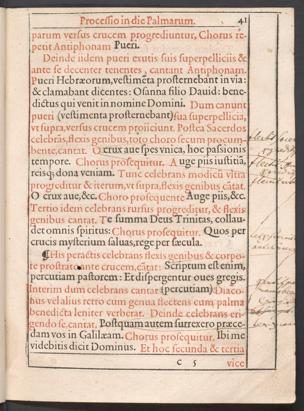 Processio in die Palmarum. 41
parum versus crucem progrediuntur, Chorus re-
petit Antiphonam Pueri.
Deinde iidem pueri exutis suis superpelliciis &
ante se decenter tenentes, cantant Antiphonam.
Pueri Hebræorum, vestimēta prosternebant in via:
& clamabant dicentes: Osanna filio Dauid: bene-
dictus qui venit in nomine Domini. Dum canunt
pueri (vestimenta prosternebant) sua superpellicia,
vt supra, versus crucem proiiciunt. Postea Sacerdos
celebrās, flexis genibus, toto choro secum procum-
bente, cantat. O crux aue spes vnica, hoc passionis
tempore. Chorus prosequitur. Auge piis iustitiā,
reisq; dona veniam. Tunc celebrans modicū vltra
progreditur & iterum, vt supra, flexis genibus cātat.
O crux aue, &c. Choro prosequente Auge piis, &c.
Tertio idem celebrans rursus progreditur, & flexis
genibus cantat. Te summa Deus Trinitas, collau-
det omnis spiritus: Chorus prosequitur. Quos per
crucis mysterium saluas, rege per sæcula.
¶ His peractis celebrans flexis genibus & corpo-
re prostrato ante crucem, cātat: Scriptum est enim,
percutiam pastorem: Et dispergentur oues gregis.
Interim dum celebrans cantat (percutiam) Diaco-
nus vel alius retro cum genua flectens cum palma
benedicta leniter verberat. Deinde celebrans eri-
gendo se, cantat. Postquam autem surrexero præce-
dam vos in Galilæam. Chorus prosequitur. Ibi me
videbitis dicit Dominus. Et hoc secunda & tertia
C 5 vice